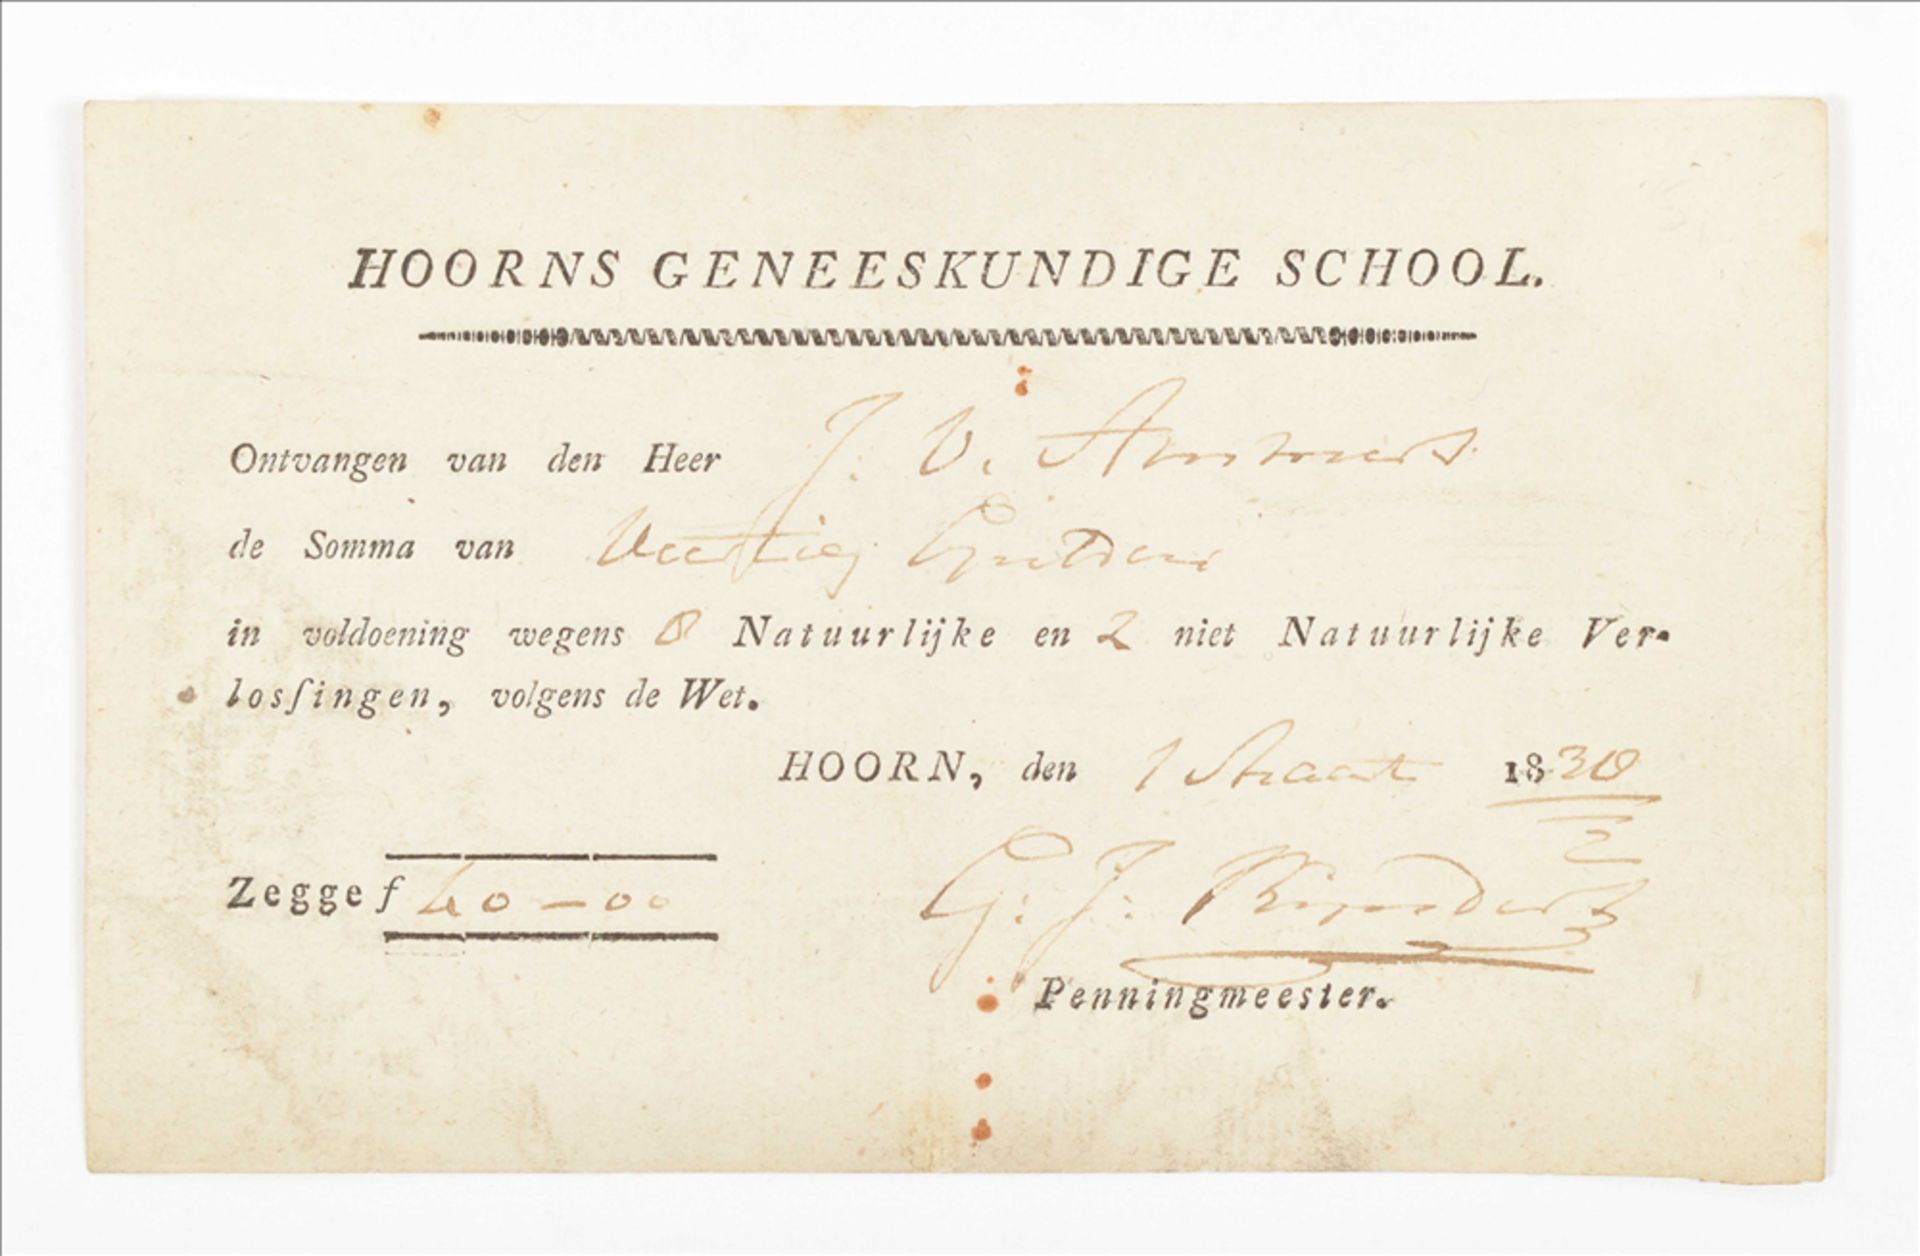 HOORNS GENEESKUNDIGE SCHOOL.
Ontvangen van den Heer J: V. Ammers
de Somma van Veertig Gulden
in voldoening wegens 8 Natuurlijke en 2 niet Natuurlijke Ver-
losſingen, volgens de Wet.
HOORN, den 1 Maart 1830
Zegge f 40-00
G: J:
Penningmeester.